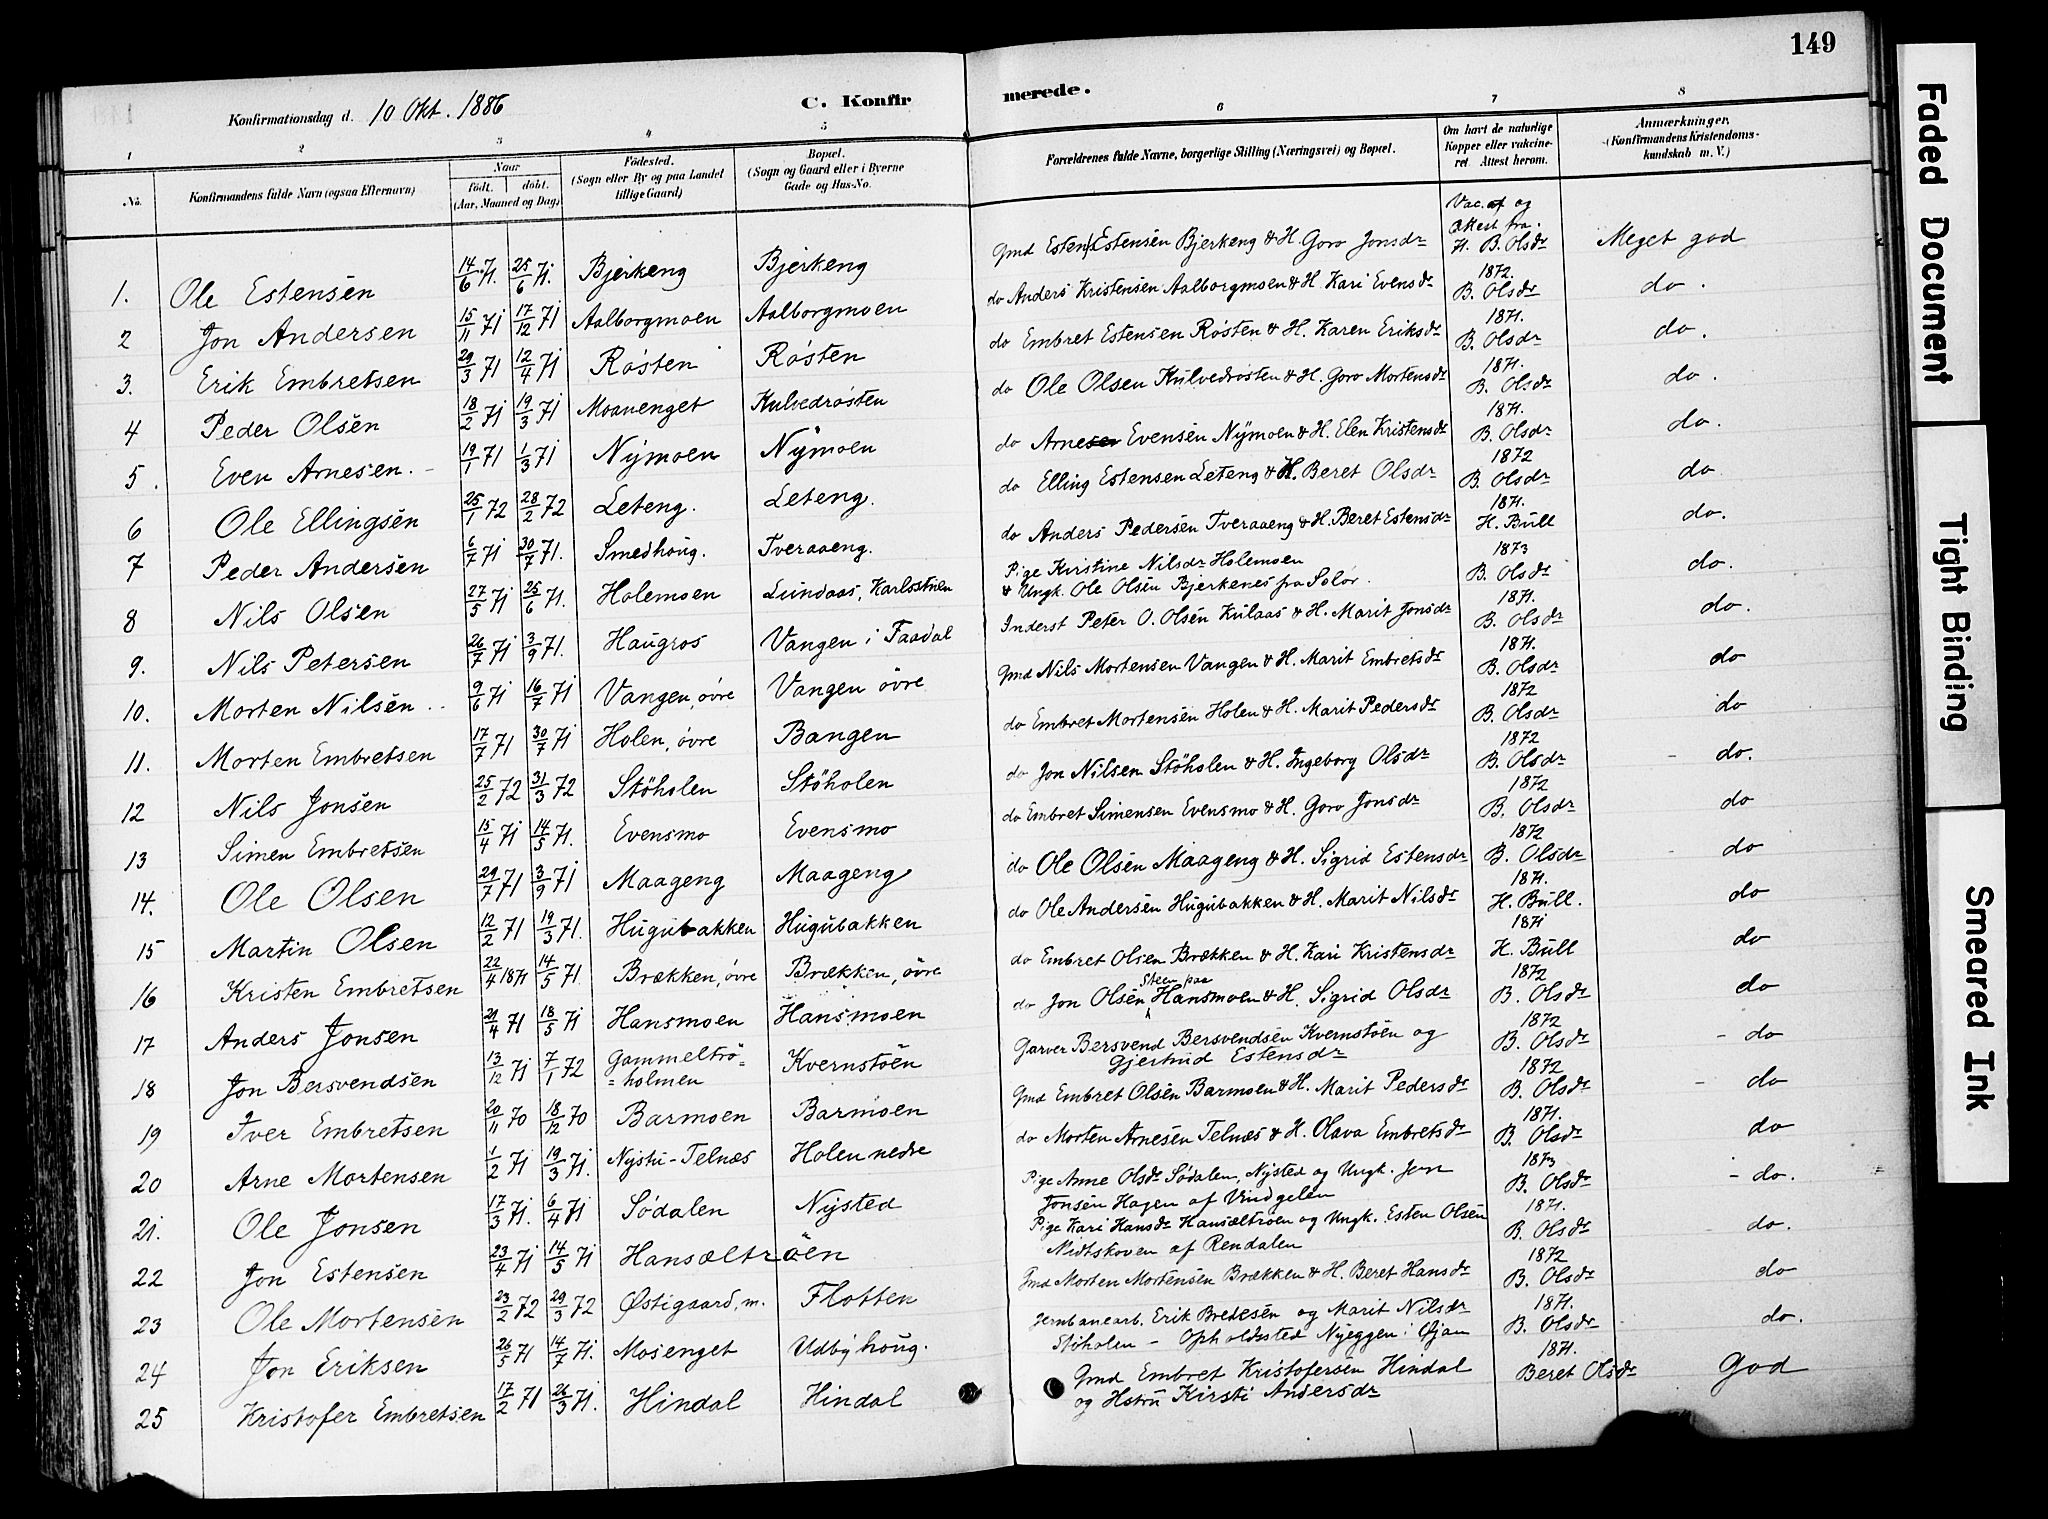 149
Konfirmationsdag d. 10 Okt. 1886
C. Konfirmerede.
1 2 3 4 5 6 7 8
No. Konfirmandens fulde Navn (ogsaa Efternavn) Naar født. døbt. (Aar, Maaned og Dag) Fødested. (Sogn eller By og paa Landet tillige Gaard) Bopæl. (Sogn og Gaard eller i Byerne Gade og Hus-No. Forældrenes fulde Navne, borgerlige Stilling (Næringsvei) og Bopæl. Om havt de naturlige Kopper eller vaccineret Attest herom. Anmærkninger, (Konfirmandens Kristendomskundskab m. V.)
1. Ole Estensen 14/6 71. 25/6 71. Bjerkeng Bjerkeng Gmd Esten Estensen Bjerkeng & H. Goro Jonsdr Vac. af og Attest fra H. B. Olsdr Meget god
2 Jon Andersen 15/11 71 17/12 71 Aalborgmoen Aalborgmoen do Anders Kristensen Aalborgmoen & H. Kari Evensdr 1872. B. Olsdr do.
3. Erik Embretsen 29/3 71 12/4 71 Røsten Røsten do Embret Estensen Røsten & H. Karen Eriksdr 1871. B. Olsdr do.
4 Peder Olsen 18/2 71 19/3 71 Moanenget Kulvedrøsten do Ole Olsen Kulvedrøsten & H. Goro Mortensdr 1871. B. Olsdr do.
5. Even Arnesen. 19/1 71 1/3 71 Nymoen Nymoen do Arne Evensen Nymoen & H. Elen Kristensdr 1871. B. Olsdr do.
6 Ole Ellingsen 25/1 72 28/2 72 Leteng. Leteng. do Elling Estensen Leteng & H. Beret Olsdr 1872 B. Olsdr do
7 Peder Andersen 6/7 71 30/7 71. Smedhoug. Tveraaeng. do Anders Pedersen Tveraaeng & H. Beret Estensdr 1871. H. Bull do.
8 Nils Olsen 27/5 71 25/6 71. Holemoen Lundaas, Karlsstuen Pige Kirstine Nilsdr Holemoen & Ungk. Ole Olsen Bjerkenes fra Solør. 1873 B. Olsdr do.
9. Nils Petersen 26/7 71 3/9 71. Haugros Vangen i Faadal Inderst Peter O. Olsen Kulaas & H. Marit Jonsdr 1871. B. Olsdr do.
10. Morten Nilsen 9/6 71 16/7 71 Vangen, øvre Vangen øvre Gmd Nils Mortensen Vangen & H. Marit Embretsdr 1871. B. Olsdr do
11. Morten Embretsen 17/7 71 30/7 71 Holen, øvre Bangen do Embret Mortensen Holen & H. Marit Pedersdr 1872 B. Olsdr do
12 Nils Jonsen 25/2 72 31/3 72 Støholen Støholen do Jon Nilsen Støholen & H. Ingeborg Olsdr 1872 B. Olsdr do.
13 Simen Embretsen 15/4 71 14/5 71. Evensmo Evensmo do Embret Simensen Evensmo & H. Goro Jonsdr 1872 B. Olsdr do
14. Ole Olsen 29/7 71 3/9 71 Maageng Maageng do Ole Olsen Maageng & H. Sigrid Estensdr 1872 B. Olsdr do
15 Martin Olsen 12/2 71 19/3 71. Hugubakken Hugubakken do Ole Andersen Hugubakken & H. Marit Nilsdr 1871. H. Bull. do
16 Kristen Embretsen 22/4 1871 14/5 71 Brækken, øvre Brækken, øvre do Embret Olsen Brækken & H. Kari Kristensdr 1871 H. Bull do
17 Anders Jonsen 21/4 71 18/5 71 Hansmoen Hansmoen do Jon Olsen Steen paa Hansmoen & H. Sigrid Olsdr 1872 B. Olsdr do
18 Jon Bersvendsen 13/12 71 7/1 72 Gammeltrø= =holmen Kvernstøen Garver Bersvend Bersvendsen Kvernstøen og Gjertrud Estensdr 1872 B. Olsdr - do
19 Iver Embretsen 20/11 70 18/12 70 Barmoen Barmoen Gmd Embret Olsen Barmoen & H. Marit Pedersdr 1872 B. Olsdr - do
20 Arne Mortensen 1/2 71 19/3 71. Nystu-Telnæs Holen nedre do Morten Arnesen Telnæs & H. Olava Embretsdr 1871. B. Olsdr do
21. Ole Jonsen 17/3 71. 6/4 71 Sødalen Nysted Pige Anne Olsdr Sødalen, Nysted og Ungk. Jon Jonsen Hagen af Vingelen 1873 B. Olsdr - do.
22 Jon Estensen 23/4 71 14/5 71 Hansæltrøen Pige Kari Hansdr Hansæltrøen og Ungk. Esten Olsen Midtskoven af Rendalen 1871. B. Olsdr do.
23 Ole Mortensen 23/2 72 29/3 72 Østigaard, m. Flotten Gmd Morten Mortensen Brækken & H. Beret Hansdr 1872 B. Olsdr do
24 Jon Eriksen 26/5 71 14/7 71. Mosenget Udbyhoug. Jernbanearb. Erik Bredesen og Marit Nilsdr Støholen - Opholdssted Nyeggen i Øjan 1871. B. Olsdr do.
25 Kristofer Embretsen 17/2 71 26/3 71. Hindal Hindal Gmd Embret Kristofersen Hindal og Hstru Kirsti Andersdr 1871. Beret Olsdr God
Faded Document
Tight Binding
Smeared Ink